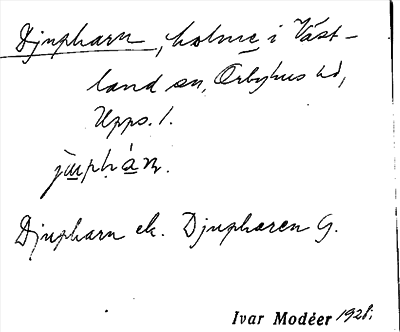 Djupharn, holme i Väst-
land sn, Örbyhus hd,
Upps. l.
jùphá̀n.
Djupharn ek. Djupharen G.
Ivar Modéer 1928.